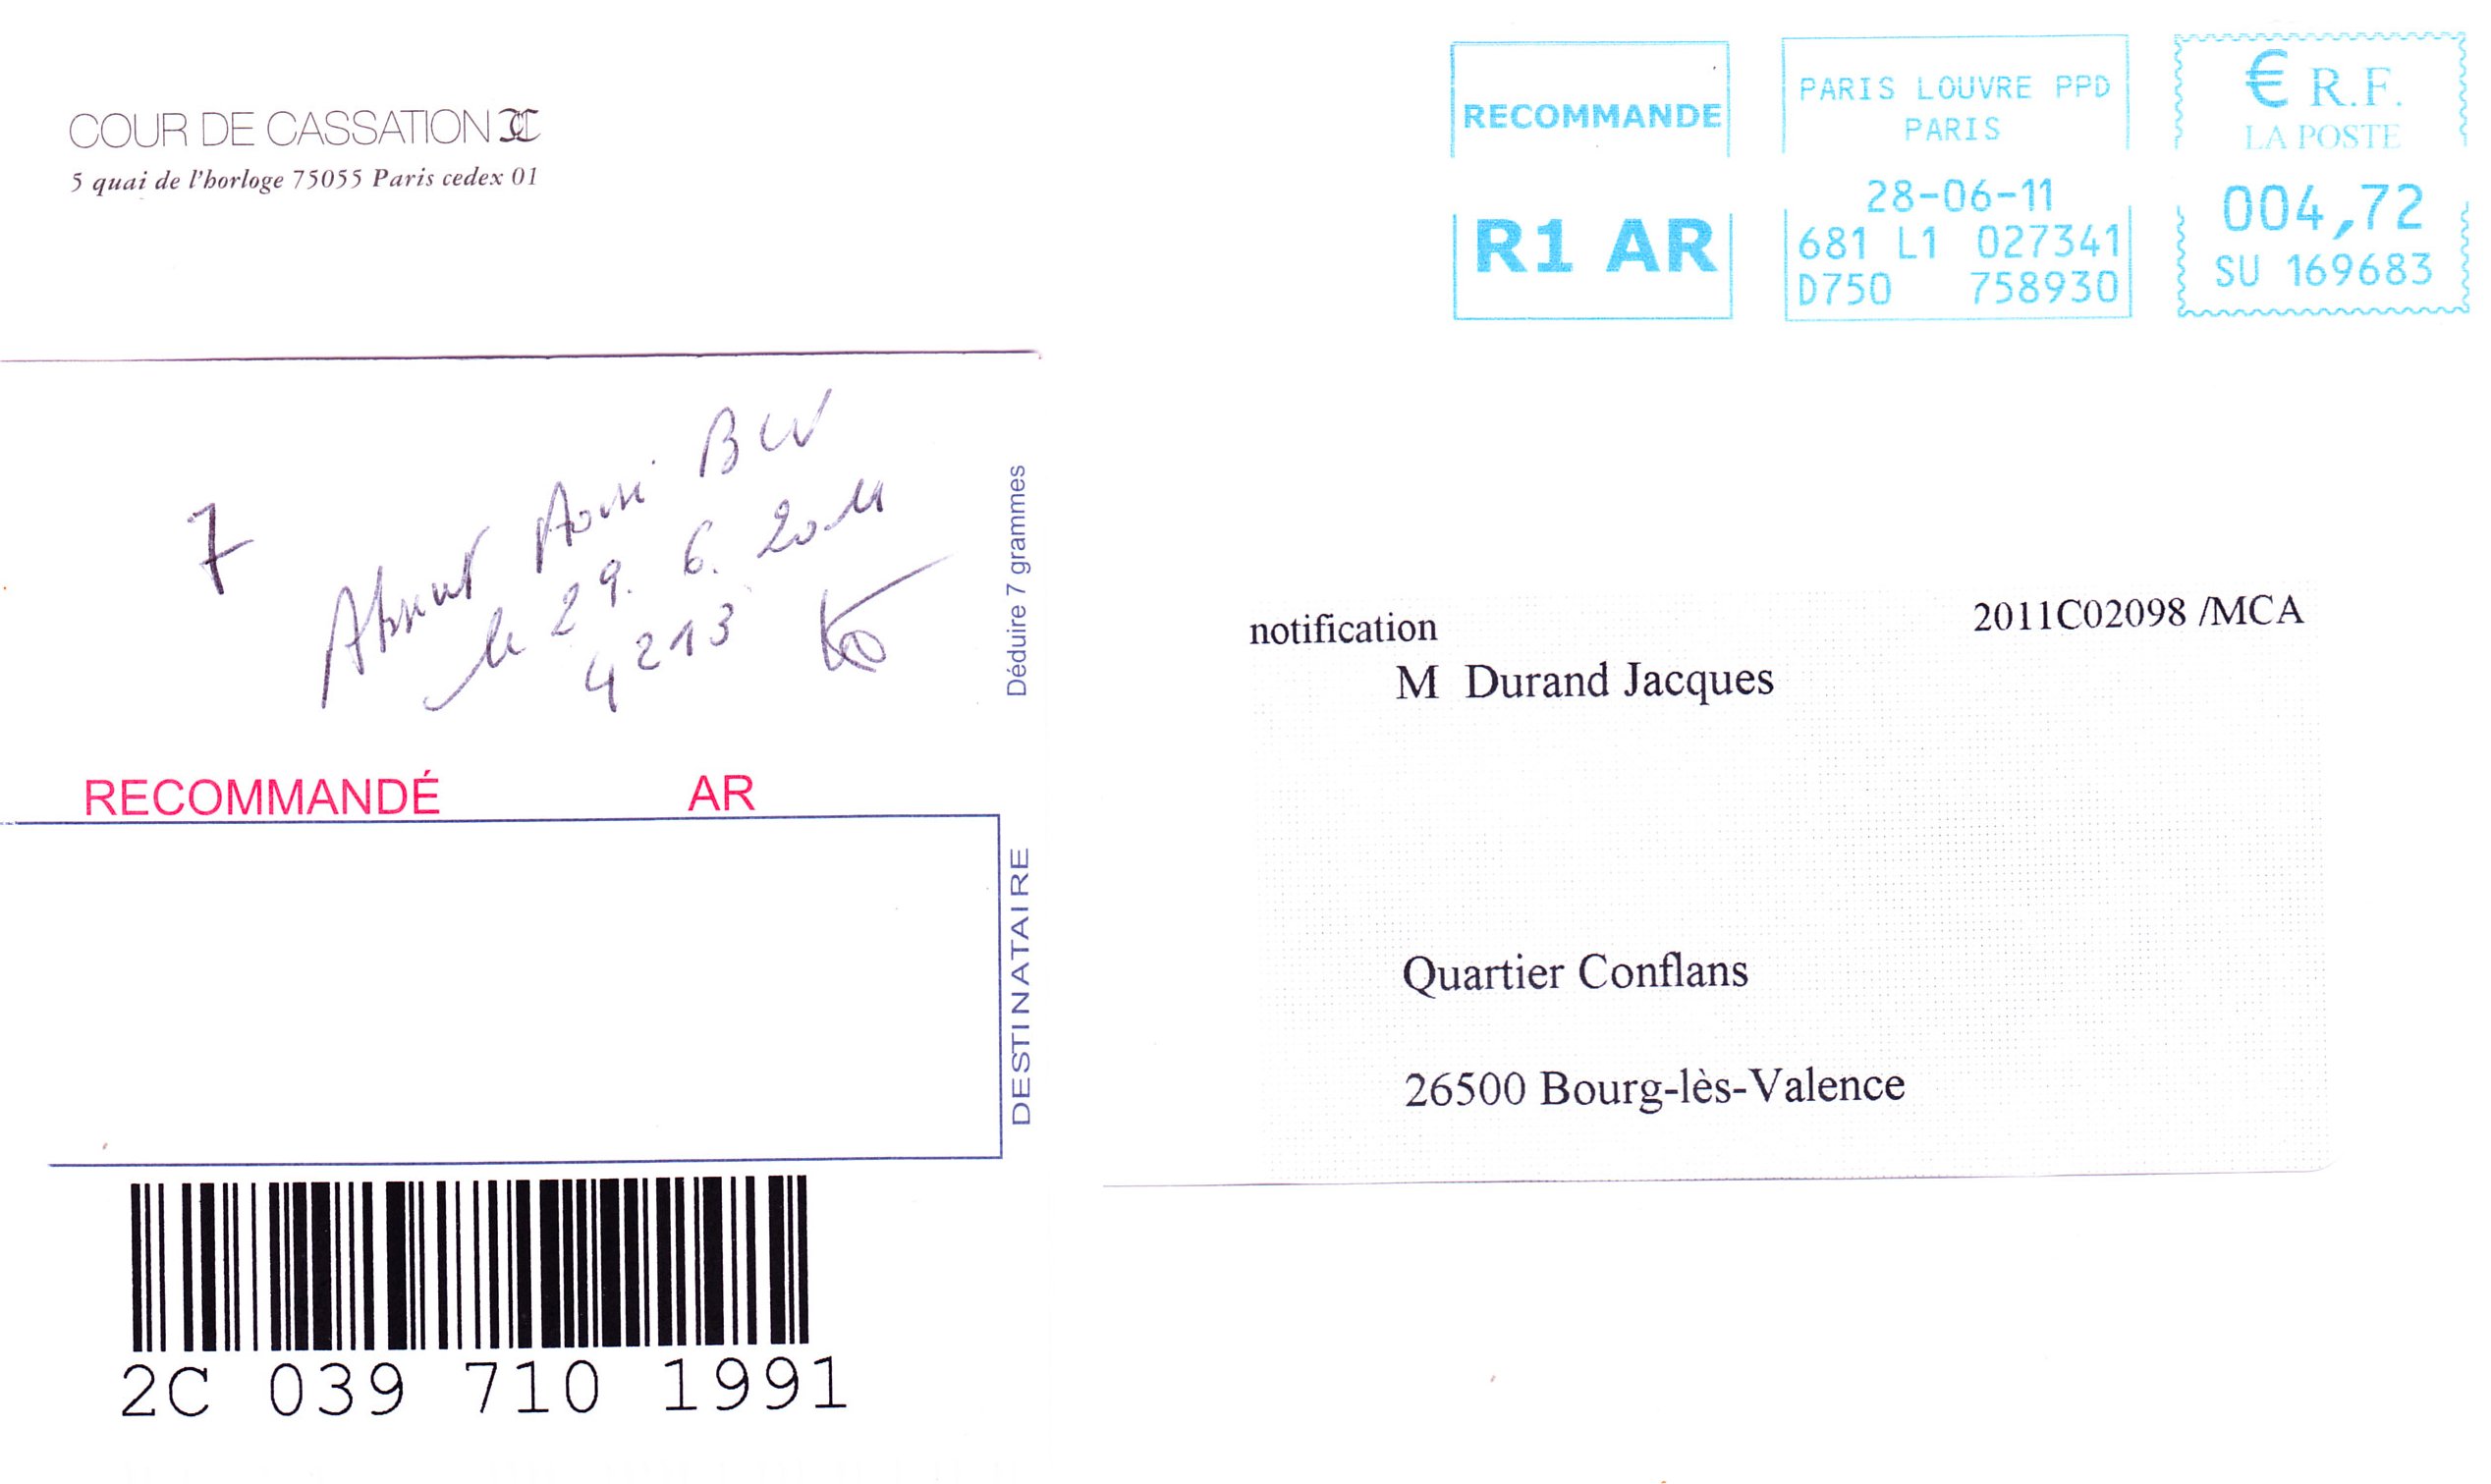 COUR DE CASSATION
5 quai de l'horloge 75055 Paris cedex 01
RECOMMANDE
R1 AR
PARIS LOUVRE PPD
PARIS
28-06-11
681 L1 027341
D750 758930
€ R.F.
LA POSTE
004,72
SU 169683
7
Absent Avisé BLV
le 29. 6. 2011
4213
Déduire 7 grammes
RECOMMANDÉ AR
DESTINATAIRE
2C 039 710 1991
notification 2011C02098 /MCA
M Durand Jacques
Quartier Conflans
26500 Bourg-lès-Valence